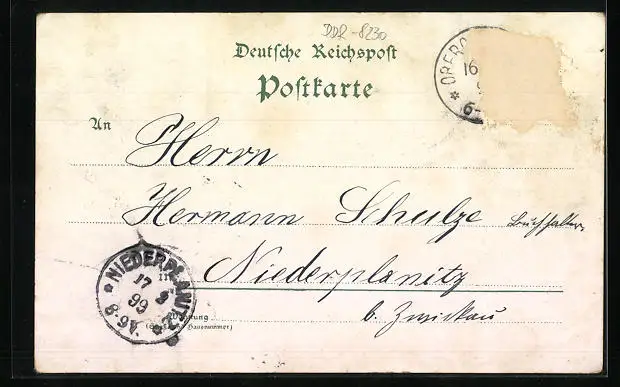 DDR-8230
Deutsche Reichspost
Postkarte
OBERC
16
6-
An Herrn
Hermann Schulze Buchhalter
in Niederplanitz
b. Zwickau
NIEDERPLANITZ
17 8
99
8-9V.
Wohnung
(Straße und Hausnummer)